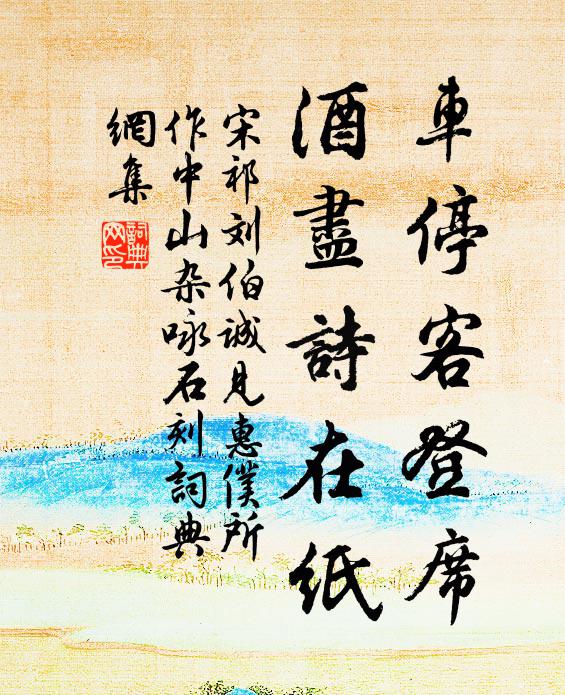 車停客登席
酒盡詩在紙
宋祁刘伯誠見惠僕所
作中山杂咏石刻詞典
網集
詞典
网印